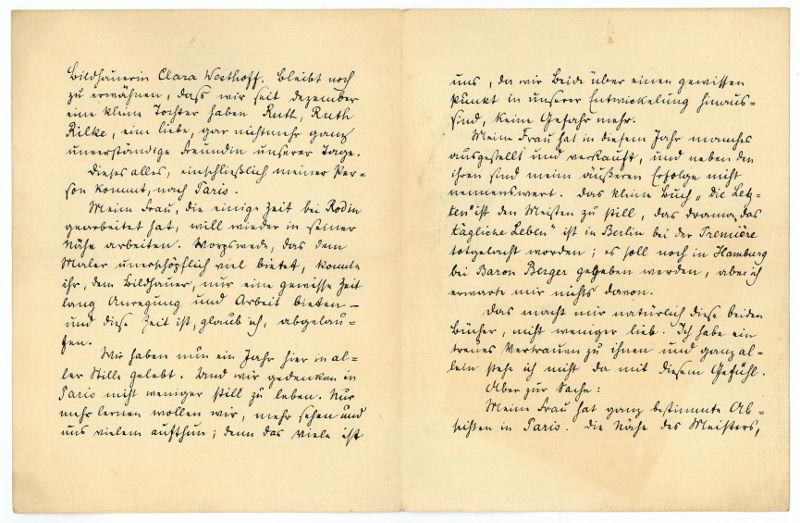 Bildhauerin Clara Westhoff. Bleibt noch
zu erwähnen, dass wir seit Dezember
eine kleine Tochter haben Ruth, Ruth
Rilke, eine liebe, gar nichtmehr ganz
unverständige Freundin unserer Tage.
Dieses alles, einschließlich meiner Per-
son kommt, nach Paris.
Meine Frau, die einige Zeit bei Rodin
gearbeitet hat, will wieder in seiner
Nähe arbeiten. Worpswede, das dem
Maler unerschöpflich viel bietet, konnte
ihr, dem Bildhauer, nur eine gewisse Zeit
lang Anregung und Arbeit bieten —
und diese Zeit ist, glaub ich, abgelau-
fen.
Wir haben nun ein Jahr hier in al-
ler Stille gelebt. Und wir gedenken in
Paris nicht weniger still zu leben. Nur
mehr lernen wollen wir, mehr sehen und
uns vielem aufthun; denn das Viele ist
uns, da wir Beide über einen gewissen
Punkt in unserer Entwickelung hinaus-
sind, keine Gefahr mehr.
Meine Frau hat in diesem Jahr manches
ausgestellt und verkauft, und neben den
ihren sind meine äußeren Erfolge nicht
nennenswert. Das kleine Buch „Die Letz-
ten" ist den Meisten zu still, das Drama „das
tägliche Leben" ist in Berlin bei der Première
totgelacht worden; es soll noch in Hamburg
bei Baron Berger gegeben werden, aber ich
erwarte mir nichts davon.
Das macht mir natürlich diese beiden
Bücher, nicht weniger lieb. Ich habe ein
treues Vertrauen zu ihnen und ganz al-
lein stehe ich nicht da mit diesem Gefühl.
Aber zur Sache:
Meine Frau hat ganz bestimmte Ab-
sichten in Paris. Die Nähe des Meisters,